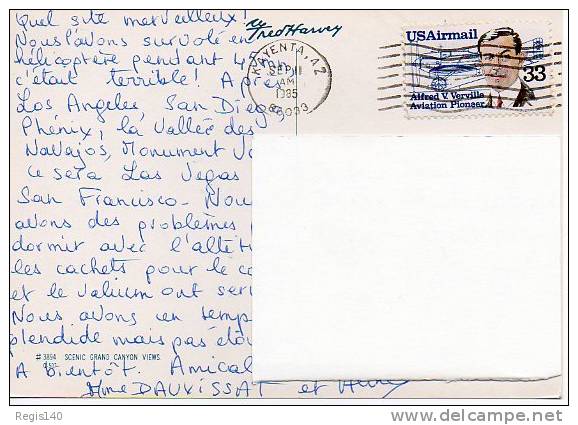 Quel site merveilleux!
Nous l'avons survolé en
hélicoptère pendant
c'était terrible! Après
Los Angeles, San Dieg
Phenix, la Vallée des
Navajos, Monument Va
ce sera Las Vegas
San Francisco. Nou
avons des problèmes p
dormir avec l'altit
les cachets pour le co
et le valium ont ser
Nous avons un temp
splendide mais pas
# 3894 SCENIC GRAND CANYON VIEWS
A bientôt. Amical
Mme DAUVISSAT et
Fred Harvey
KAYENTA, AZ
SEP 11
AM
1985
86033
USAirmail
33
Alfred V. Verville
Aviation Pioneer
Regis140
delcampe.net